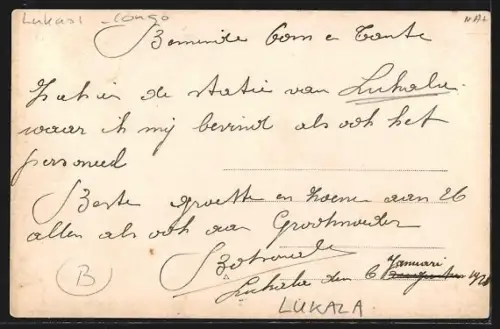 Lukasi - Congo
Beminde Oom e Tante
Ziehier de statie van Lukala.
waar ik mij bevind als ook het
personeel
Beste groetten en zoenen aan
allen als ook aan Grootmoeder
Lukala den 6 Januari
B
LUKALA